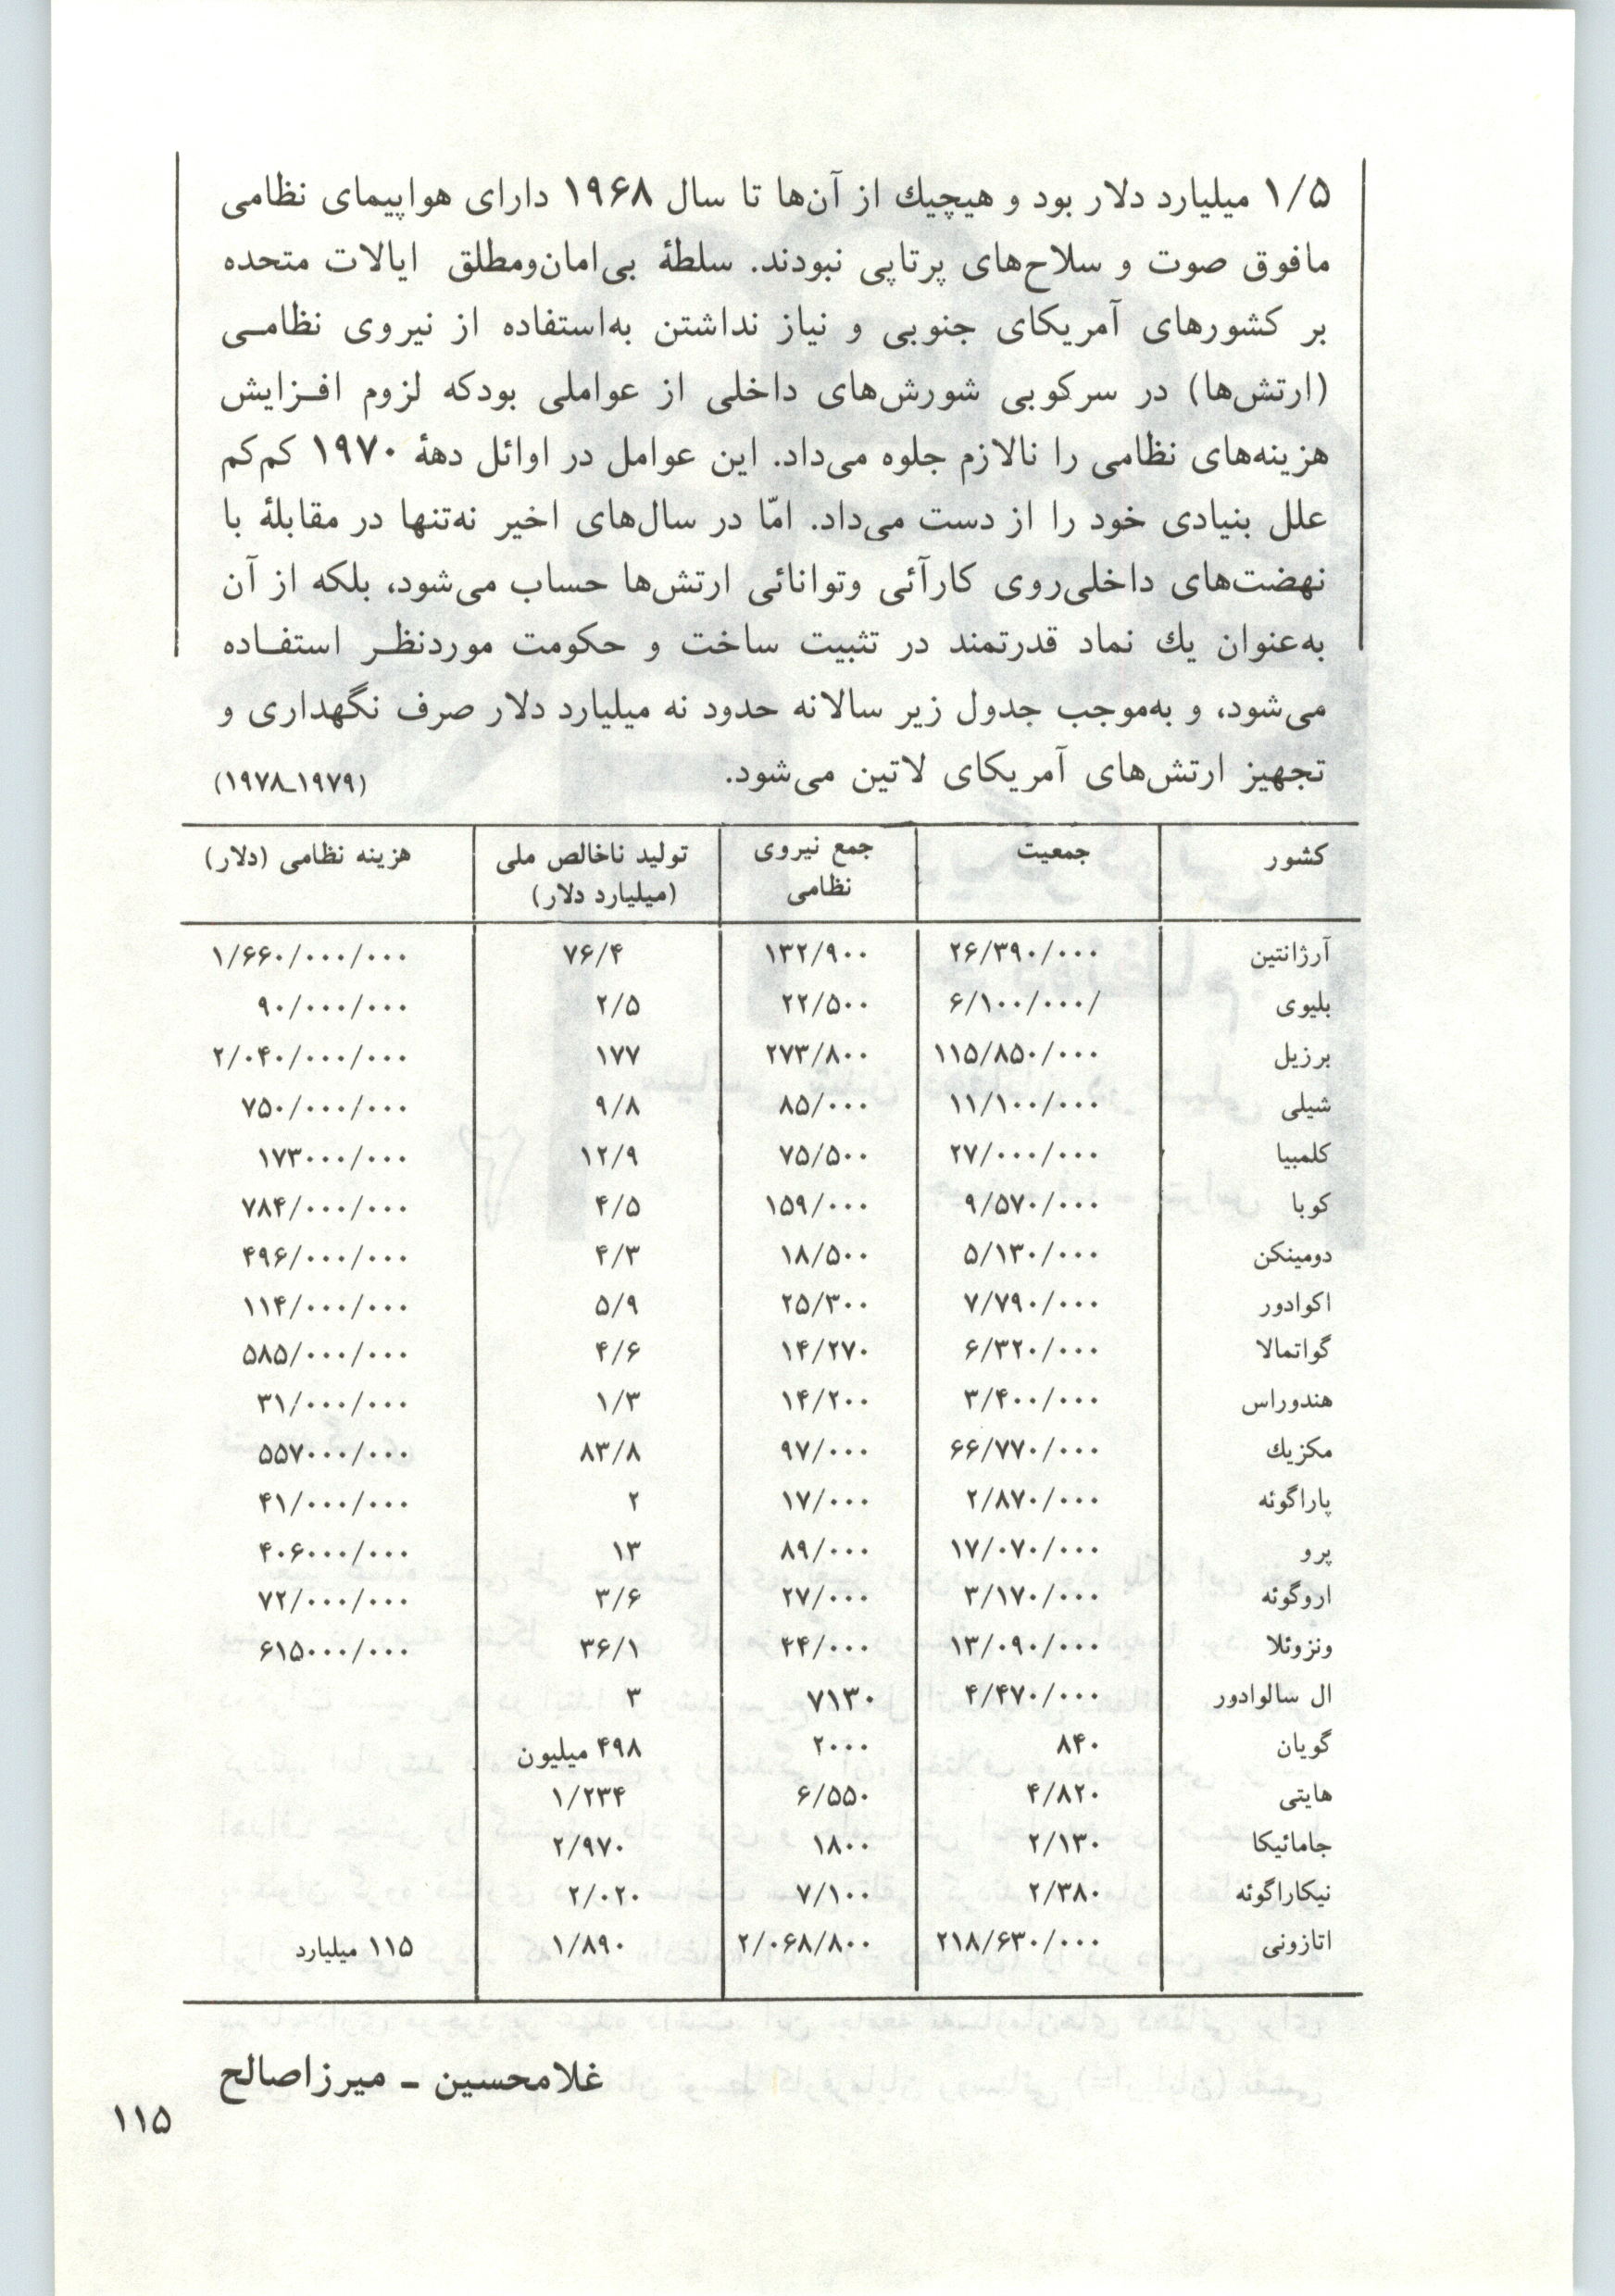 ۱/۵ میلیارد دلار بود و هیچیك از آن‌ها تا سال ۱۹۶۸ دارای هواپیمای نظامی
مافوق صوت و سلاح‌های پرتاپی نبودند. سلطهٔ بی‌امان‌ومطلق ایالات متحده
بر کشورهای آمریکای جنوبی و نیاز نداشتن به‌استفاده از نیروی نظامـی
(ارتش‌ها) در سرکوبی شورش‌های داخلی از عواملی بودکه لزوم افـزایش
هزینه‌های نظامی را نالازم جلوه می‌داد. این عوامل در اوائل دههٔ ۱۹۷۰ کم‌کم
علل بنیادی خود را از دست می‌داد. امّا در سال‌های اخیر نه‌تنها در مقابلهٔ با
نهضت‌های داخلی‌روی کارآئی وتوانائی ارتش‌ها حساب می‌شود، بلکه از آن
به‌عنوان یك نماد قدرتمند در تثبیت ساخت و حکومت موردنظـر استفـاده
می‌شود، و به‌موجب جدول زیر سالانه حدود نه میلیارد دلار صرف نگهداری و
تجهیز ارتش‌های آمریکای لاتین می‌شود. (۱۹۷۹ـ۱۹۷۸)
کشور جمعیت جمع نیروی نظامی تولید ناخالص ملی (میلیارد دلار) هزینه نظامی (دلار)
آرژانتین ۲۶/۳۹۰/۰۰۰ ۱۳۲/۹۰۰ ۷۶/۴ ۱/۶۶۰/۰۰۰/۰۰۰
بلیوی ۶/۱۰۰/۰۰۰/ ۲۲/۵۰۰ ۲/۵ ۹۰/۰۰۰/۰۰۰
برزیل ۱۱۵/۸۵۰/۰۰۰ ۲۷۳/۸۰۰ ۱۷۷ ۲/۰۴۰/۰۰۰/۰۰۰
شیلی ۱۱/۱۰۰/۰۰۰ ۸۵/۰۰۰ ۹/۸ ۷۵۰/۰۰۰/۰۰۰
کلمبیا ۲۷/۰۰۰/۰۰۰ ۷۵/۵۰۰ ۱۲/۹ ۱۷۳۰۰۰/۰۰۰
کوبا ۹/۵۷۰/۰۰۰ ۱۵۹/۰۰۰ ۴/۵ ۷۸۴/۰۰۰/۰۰۰
دومینکن ۵/۱۳۰/۰۰۰ ۱۸/۵۰۰ ۴/۳ ۴۹۶/۰۰۰/۰۰۰
اکوادور ۷/۷۹۰/۰۰۰ ۲۵/۳۰۰ ۵/۹ ۱۱۴/۰۰۰/۰۰۰
گواتمالا ۶/۳۲۰/۰۰۰ ۱۴/۲۷۰ ۴/۶ ۵۸۵/۰۰۰/۰۰۰
هندوراس ۳/۴۰۰/۰۰۰ ۱۴/۲۰۰ ۱/۳ ۳۱/۰۰۰/۰۰۰
مکزیك ۶۶/۷۷۰/۰۰۰ ۹۷/۰۰۰ ۸۳/۸ ۵۵۷۰۰۰/۰۰۰
پاراگوئه ۲/۸۷۰/۰۰۰ ۱۷/۰۰۰ ۲ ۴۱/۰۰۰/۰۰۰
پرو ۱۷/۰۷۰/۰۰۰ ۸۹/۰۰۰ ۱۳ ۴۰۶۰۰۰/۰۰۰
اروگوئه ۳/۱۷۰/۰۰۰ ۲۷/۰۰۰ ۳/۶ ۷۲/۰۰۰/۰۰۰
ونزوئلا ۱۳/۰۹۰/۰۰۰ ۴۴/۰۰۰ ۳۶/۱ ۶۱۵۰۰۰/۰۰۰
ال سالوادور ۴/۴۷۰/۰۰۰ ۷۱۳۰ ۳
گویان ۸۴۰ ۲۰۰۰ ۴۹۸ میلیون
هایتی ۴/۸۲۰ ۶/۵۵۰ ۱/۲۳۴
جامائیکا ۲/۱۳۰ ۱۸۰۰ ۲/۹۷۰
نیکاراگوئه ۲/۳۸۰ ۷/۱۰۰ ۲/۰۲۰
اتازونی ۲۱۸/۶۳۰/۰۰۰ ۲/۰۶۸/۸۰۰ ۱/۸۹۰ ۱۱۵ میلیارد
غلامحسین ـ میرزاصالح
۱۱۵